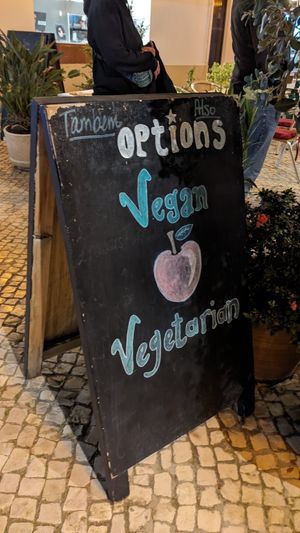 Também Also
OPTIONS
Vegan
Vegetarian